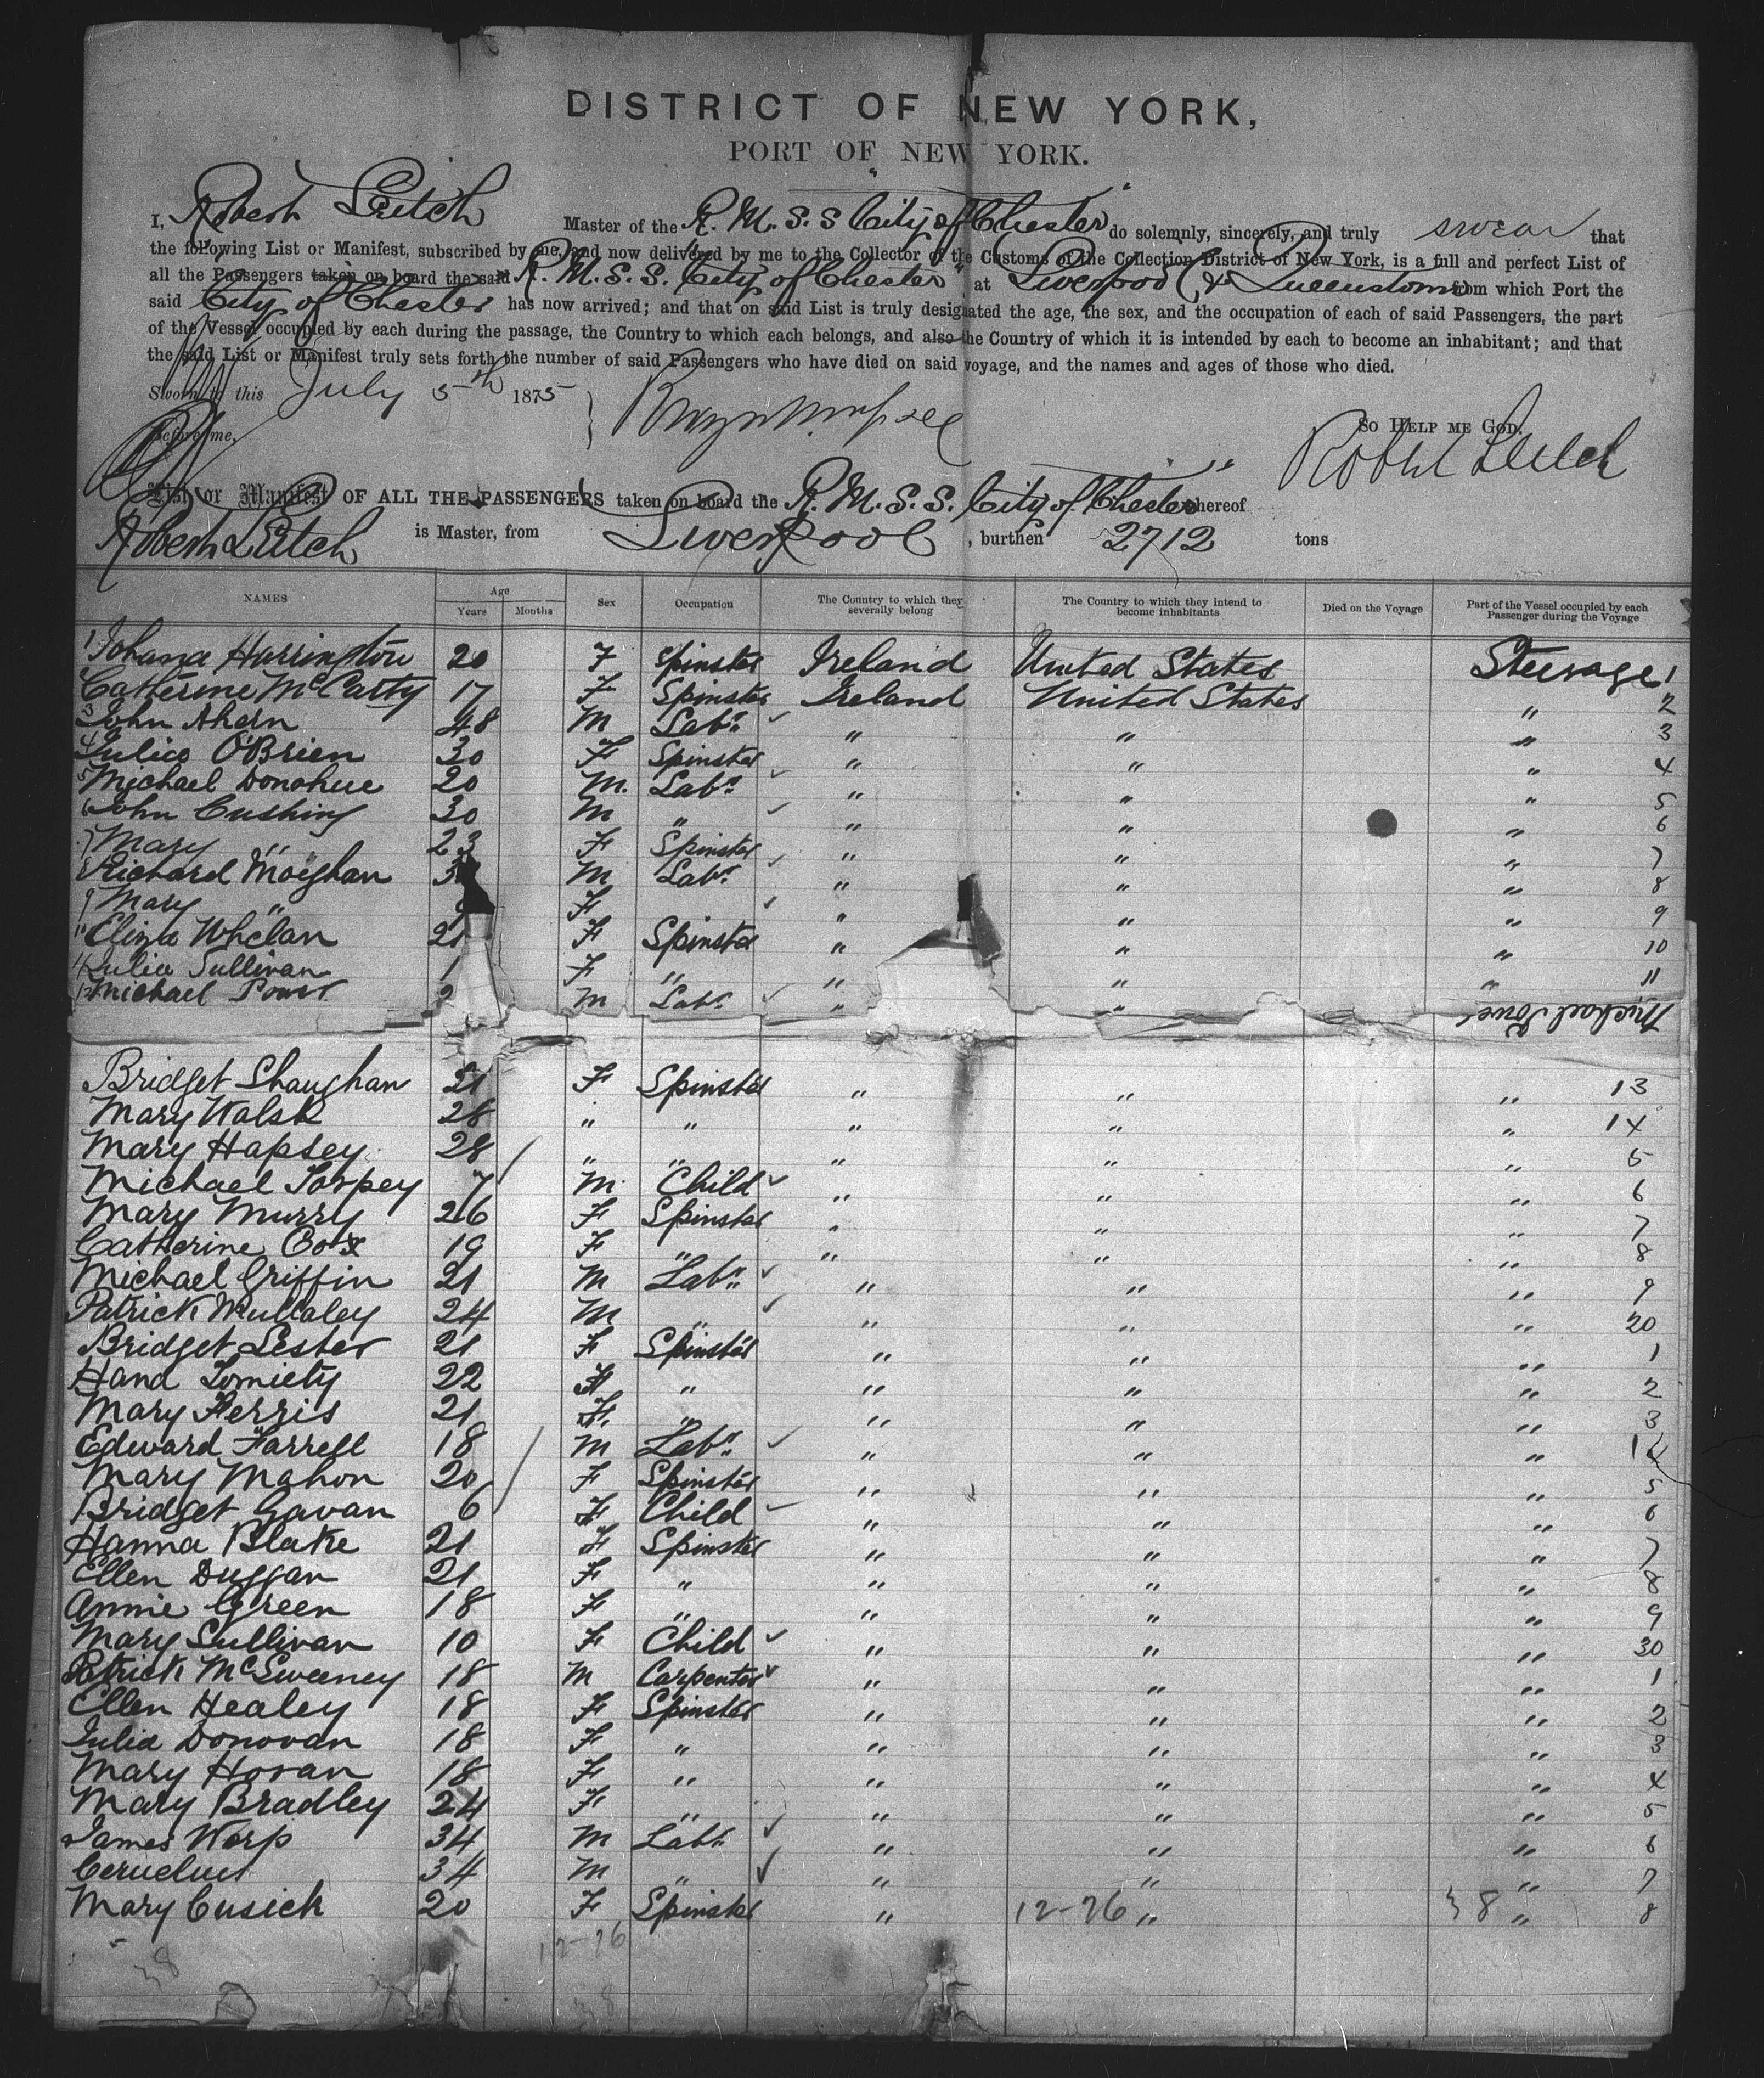 DISTRICT OF NEW YORK,
PORT OF NEW YORK.
I, Robert Leitch Master of the R. M. S. S City of Chester do solemnly, sincerely, and truly swear that
the following List or Manifest, subscribed by me, and now delivered by me to the Collector of the Customs of the Collection District of New York, is a full and perfect List of
all the Passengers taken on board the said R. M. S. S. City of Chester at Liverpool (& Queenstown) from which Port the
said City of Chester has now arrived; and that on said List is truly designated the age, the sex, and the occupation of each of said Passengers, the part
of the Vessel occupied by each during the passage, the Country to which each belongs, and also the Country of which it is intended by each to become an inhabitant; and that
the said List or Manifest truly sets forth the number of said Passengers who have died on said voyage, and the names and ages of those who died.
Sworn to this July 5th 1875
Before me,
So HELP ME GOD.
Robert Leitch
List or Manifest OF ALL THE PASSENGERS taken on board the R. M. S. S. City of Chester whereof
Robert Leitch is Master, from Liverpool, burthen 2712 tons
NAMES Age Years Months Sex Occupation The Country to which they severally belong The Country to which they intend to become inhabitants Died on the Voyage Part of the Vessel occupied by each Passenger during the Voyage
1 Johana Harrington 20 F Spinster Ireland United States Steerage 1
Catherine McCarty 17 F Spinster Ireland United States 2
3 John Ahern 48 M Labr " " " 3
4 Julia O'Brien 30 F Spinster " " " 4
5 Michael Donohue 20 M. Labr " " " 5
6 John Cushing 30 M " " " " 6
7 Mary " 23 F Spinster " " " 7
8 Richard Moeghan 3 M Labr " " " 8
9 Mary " F " " " 9
Eliza Whelan 21 F Spinster " " " 10
Julia Sullivan 1 F " " " " 11
12 Michael Power 2 M Labr " " Michael Power
Bridget Shaughan 21 F Spinster " " " 13
Mary Walsh 28 " " " " " 14
Mary Hapsey 28 " " " " " 5
Michael Torpey 7 M Child " " " 6
Mary Murry 26 F Spinster " " " 7
Catherine Cox 19 F " " " " 8
Michael Griffin 21 M Labr " " " 9
Patrick Mullaley 24 M " " " " 20
Bridget Lester 21 F Spinster " " " 1
Hana Lomiety 22 F " " " " 2
Mary Ferris 21 F. " " " " 3
Edward Farrell 18 M Labr " " " 4
Mary Mahon 20 F Spinster " " " 5
Bridget Gavan 6 F Child " " " 6
Hanna Blake 21 F Spinster " " " 7
Ellen Duggan 21 F " " " " 8
Annie Green 18 F " " " " 9
Mary Sullivan 10 F Child " " " 30
Patrick McSweeney 18 M Carpenter " " " 1
Ellen Healey 18 F Spinster " " " 2
Julia Donovan 18 F " " " " 3
Mary Horan 18 F " " " " 4
Mary Bradley 24 F " " " " 5
James Worp 34 M Labr " " " 6
34 M " " " " 7
Mary Cusick 20 F Spinster " 12-26 " 38 " 8
12-26
38
38